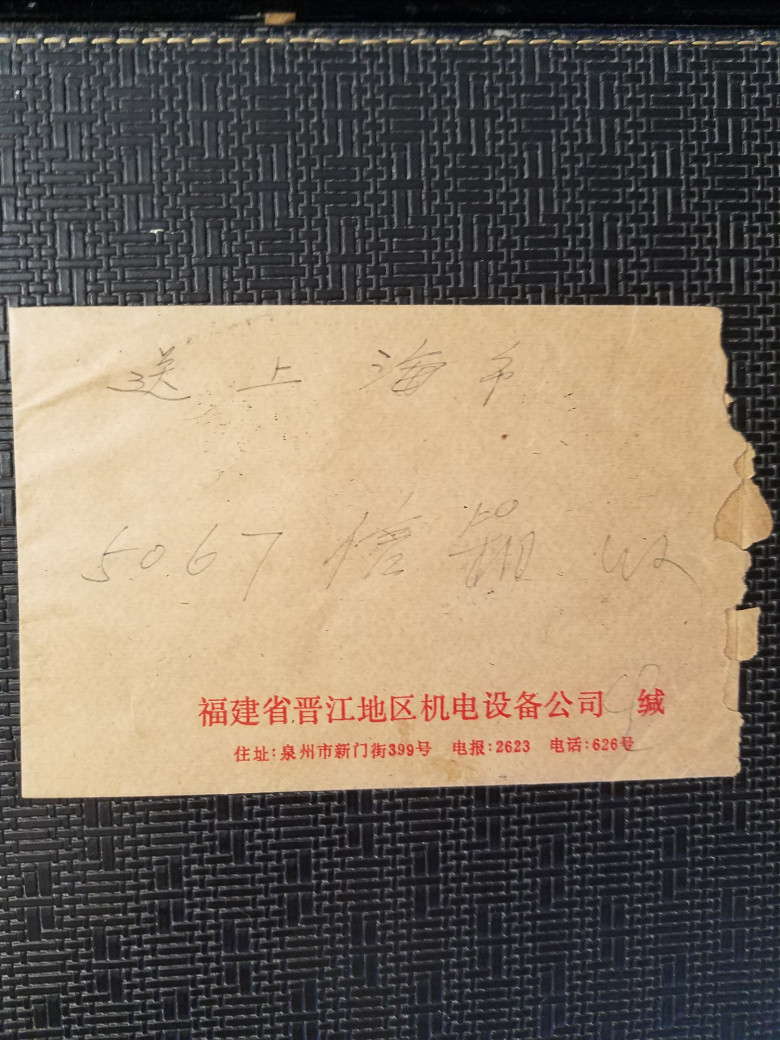 送上海市
5067信箱收
福建省晋江地区机电设备公司 缄
住址:泉州市新门街399号 电报:2623 电话:626号